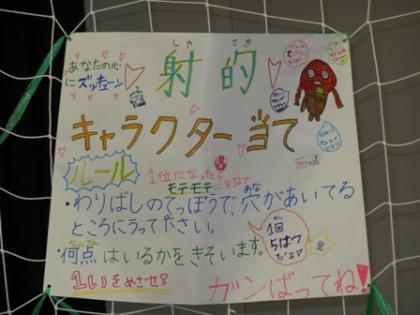 あなたの心
にズッキューン
しゃ てき
射的
キャラクター当て
ルール
1位になったら
モテモテになるよ
・わりばしのてっぽうで、穴があいてる
あな
ところにうって下さい。
・何点はいるかをきそいます。
なんてん
1回
かい
5はつ
だよ
1いをめざせ
ガンばってね!